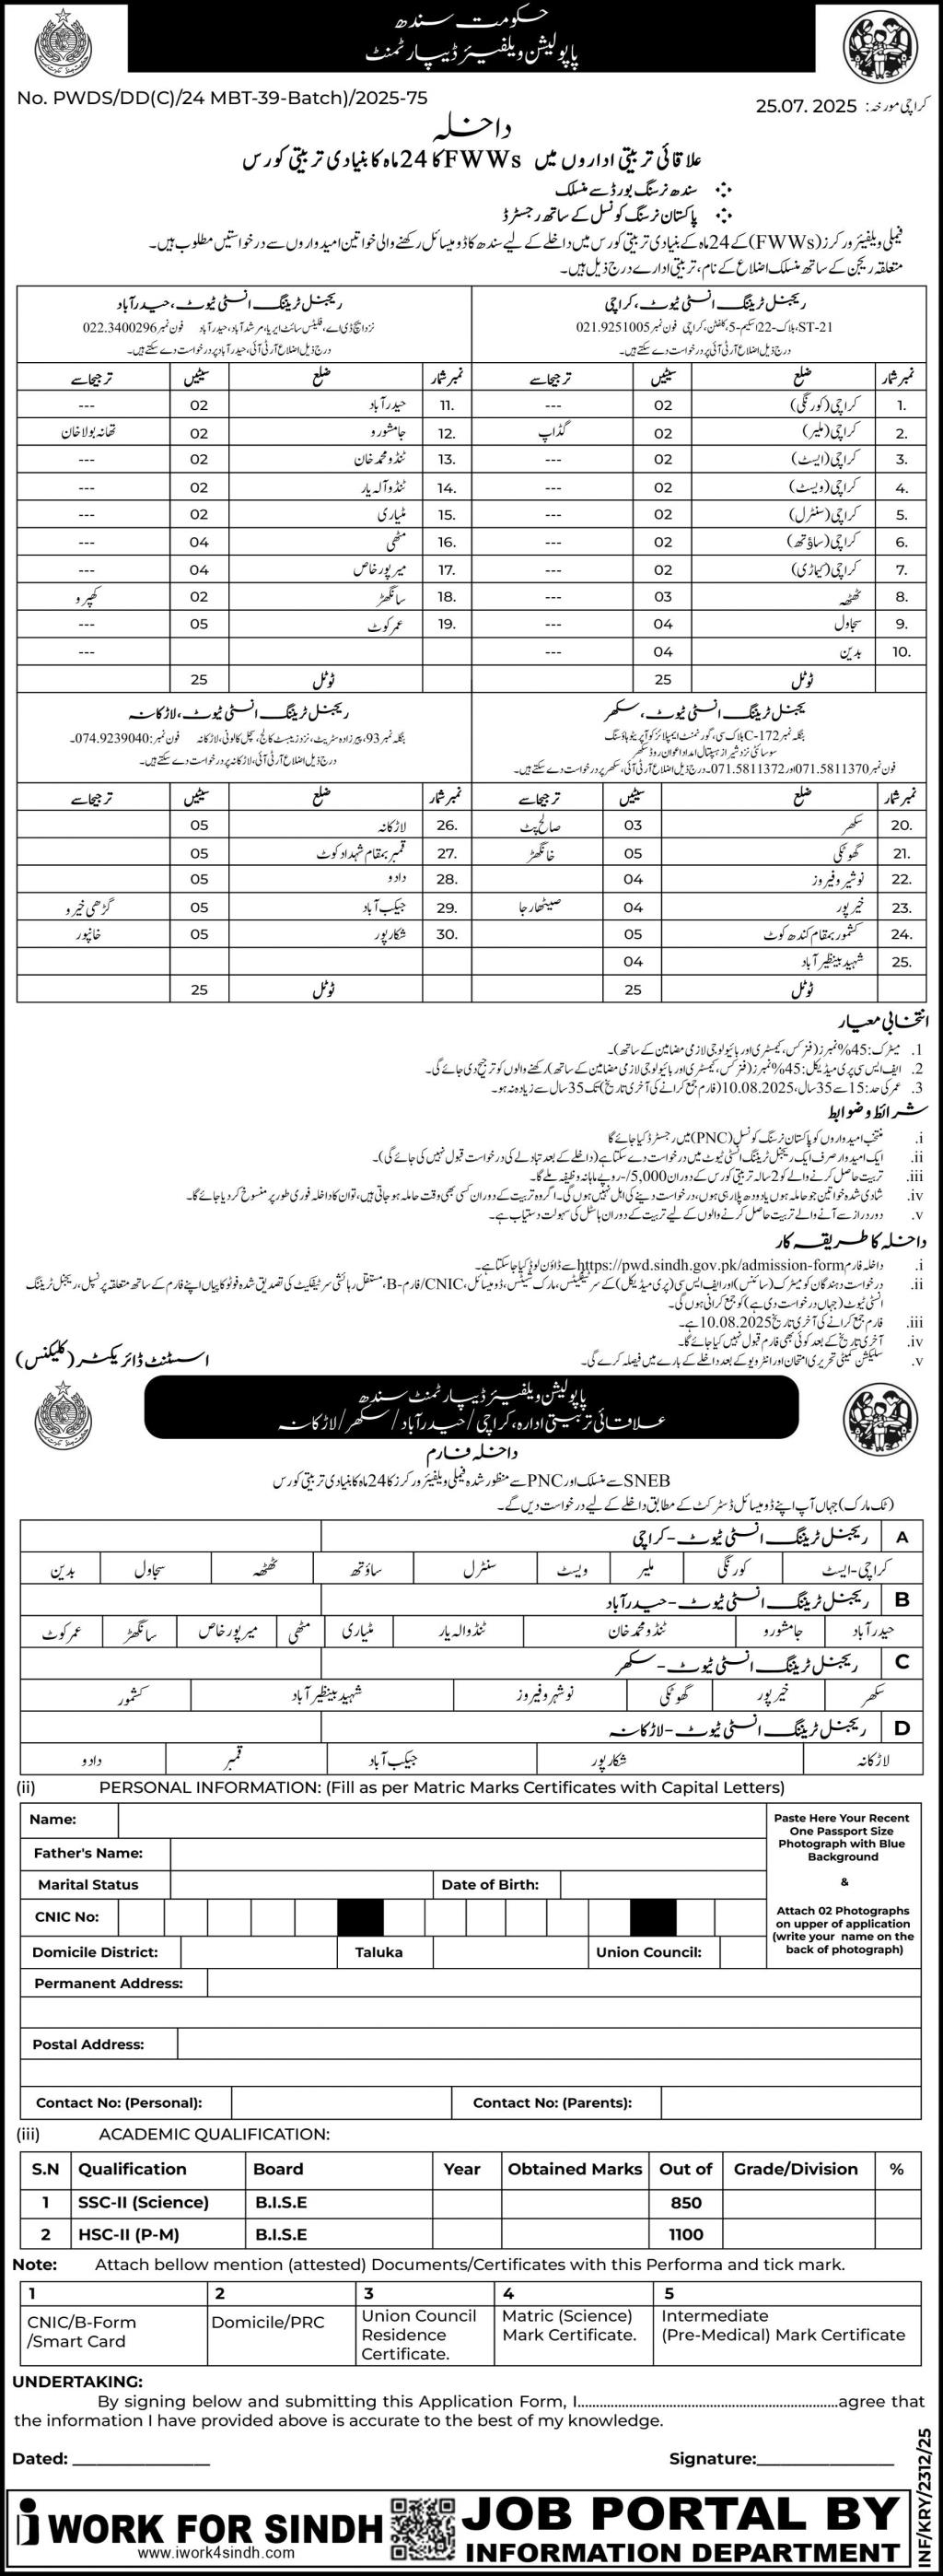 حکومت سندھ
پاپولیشن ویلفیئر ڈیپارٹمنٹ
No. PWDS/DD(C)/24 MBT-39-Batch)/2025-75
کراچی مورخہ: 25.07. 2025
داخلہ
علاقائی تربیتی اداروں میں FWWs کا 24 ماہ کا بنیادی تربیتی کورس
سندھ نرسنگ بورڈ سے منسلک
پاکستان نرسنگ کونسل کے ساتھ رجسٹرڈ
فیملی ویلفیئر ورکرز (FWWs) کے 24 ماہ کے بنیادی تربیتی کورس میں داخلے کے لیے سندھ کا ڈومیسائل رکھنے والی خواتین امیدواروں سے درخواستیں مطلوب ہیں۔
متعلقہ ریجن کے ساتھ منسلک اضلاع کے نام، تربیتی ادارے درج ذیل ہیں۔
ریجنل ٹریننگ انسٹی ٹیوٹ، کراچی
ST-21، بلاک-22 اسکیم-5، کلفٹن، کراچی فون نمبر 021.9251005
درج ذیل اضلاع آر ٹی آئی پر درخواست دے سکتے ہیں۔
نمبر شمار ضلع سیٹیں ترجیحا سے
1. کراچی (کورنگی) 02 ---
2. کراچی (ملیر) 02 گڈاپ
3. کراچی (ایسٹ) 02 ---
4. کراچی (ویسٹ) 02 ---
5. کراچی (سنٹرل) 02 ---
6. کراچی (ساؤتھ) 02 ---
7. کراچی (کیماڑی) 02 ---
8. ٹھٹھہ 03 ---
9. سجاول 04 ---
10. بدین 04 ---
ٹوٹل 25
ریجنل ٹریننگ انسٹی ٹیوٹ، حیدرآباد
نزد ایچ ڈی اے، فلیٹس سائٹ ایریا، مرشد آباد، حیدرآباد فون نمبر 022.3400296
درج ذیل اضلاع آر ٹی آئی، حیدرآباد پر درخواست دے سکتے ہیں۔
نمبر شمار ضلع سیٹیں ترجیحا سے
11. حیدرآباد 02 ---
12. جامشورو 02 تھانہ بولا خان
13. ٹنڈو محمد خان 02 ---
14. ٹنڈو آلہ یار 02 ---
15. مٹیاری 02 ---
16. مٹھی 04 ---
17. میرپور خاص 04 ---
18. سانگھڑ 02 کھپرو
19. عمر کوٹ 05 ---
---
ٹوٹل 25
یجنل ٹریننگ انسٹی ٹیوٹ، سکھر
بنگلہ نمبر C-172 بلاک سی، گورنمنٹ ایمپلائز کوآپریٹو ہاؤسنگ
سوسائٹی نزد شیراز ہسپتال امداد اعوان روڈ سکھر
فون نمبر 071.5811370 اور 071.5811372۔ درج ذیل اضلاع آر ٹی آئی، سکھر پر درخواست دے سکتے ہیں۔
نمبر شمار ضلع سیٹیں ترجیحا سے
20. سکھر 03 صالح پٹ
21. گھوٹکی 05 خانگھڑ
22. نوشیرو فیروز 04
23. خیرپور 04 صیٹھارجا
24. کشمور بمقام کندھ کوٹ 05
25. شہید بینظیر آباد 04
ٹوٹل 25
ریجنل ٹریننگ انسٹی ٹیوٹ، لاڑکانہ
بنگلہ نمبر 93، پیرزادہ سٹریٹ، نزد زیبسٹ کالج، سچل کالونی، لاڑکانہ فون نمبر: 074.9239040۔
درج ذیل اضلاع آر ٹی آئی، لاڑکانہ پر درخواست دے سکتے ہیں۔
نمبر شمار ضلع سیٹیں ترجیحا سے
26. لاڑکانہ 05
27. قمبر بمقام شہداد کوٹ 05
28. دادو 05
29. جیکب آباد 05 گڑھی خیرو
30. شکارپور 05 خانپور
ٹوٹل 25
انتخابی معیار
1. میٹرک: 45% نمبرز (فزکس، کیمسٹری اور بائیولوجی لازمی مضامین کے ساتھ)۔
2. ایف ایس سی پری میڈیکل: 45% نمبرز (فزکس، کیمسٹری اور بائیولوجی لازمی مضامین کے ساتھ) رکھنے والوں کو ترجیح دی جائے گی۔
3. عمر کی حد: 15 سے 35 سال، 10.08.2025 (فارم جمع کرانے کی آخری تاریخ) تک 35 سال سے زیادہ نہ ہو۔
شرائط و ضوابط
i. منتخب امیدواروں کو پاکستان نرسنگ کونسل (PNC) میں رجسٹرڈ کیا جائے گا
ii. ایک امیدوار صرف ایک ریجنل ٹریننگ انسٹی ٹیوٹ میں درخواست دے سکتا ہے (داخلے کے بعد تبادلے کی درخواست قبول نہیں کی جائے گی)۔
iii. تربیت حاصل کرنے والے کو 2 سالہ تربیتی کورس کے دوران 5,000/- روپے ماہانہ وظیفہ ملے گا۔
iv. شادی شدہ خواتین جو حاملہ ہوں یا دودھ پلا رہی ہوں، درخواست دینے کی اہل نہیں ہوں گی۔ اگر وہ تربیت کے دوران کسی بھی وقت حاملہ ہو جاتی ہیں، تو ان کا داخلہ فوری طور پر منسوخ کر دیا جائے گا۔
v. دور دراز سے آنے والے تربیت حاصل کرنے والوں کے لیے تربیت کے دوران ہاسٹل کی سہولت دستیاب ہے۔
داخلہ کا طریقہ کار
i. داخلہ فارم https://pwd.sindh.gov.pk/admission-form سے ڈاؤن لوڈ کیا جا سکتا ہے۔
ii. درخواست دہندگان کو میٹرک (سائنس) اور ایف ایس سی (پری میڈیکل) کے سرٹیفکیٹس، مارک شیٹس، ڈومیسائل، CNIC/فارم-B، مستقل رہائشی سرٹیفکیٹ کی تصدیق شدہ فوٹو کاپیاں اپنے فارم کے ساتھ متعلقہ پرنسپل، ریجنل ٹریننگ
انسٹی ٹیوٹ (جہاں درخواست دی ہے) کو جمع کرانی ہوں گی۔
iii. فارم جمع کرانے کی آخری تاریخ 10.08.2025 ہے۔
iv. آخری تاریخ کے بعد کوئی بھی فارم قبول نہیں کیا جائے گا۔
v. سلیکشن کمیٹی تحریری امتحان اور انٹرویو کے بعد داخلے کے بارے میں فیصلہ کرے گی۔
اسسٹنٹ ڈائریکٹر (کلینکس)
پاپولیشن ویلفیئر ڈیپارٹمنٹ سندھ
علاقائی تربیتی ادارہ، کراچی/حیدرآباد/سکھر/لاڑکانہ
داخلہ فارم
SNEB سے منسلک اور PNC سے منظور شدہ فیملی ویلفیئر ورکرز کا 24 ماہ کا بنیادی تربیتی کورس
(ٹک مارک) جہاں آپ اپنے ڈومیسائل ڈسٹرکٹ کے مطابق داخلے کے لیے درخواست دیں گے۔
A ریجنل ٹریننگ انسٹی ٹیوٹ-کراچی
کراچی-ایسٹ کورنگی ملیر ویسٹ سنٹرل ساؤتھ ٹھٹھہ سجاول بدین
B ریجنل ٹریننگ انسٹی ٹیوٹ-حیدرآباد
حیدرآباد جامشورو ٹنڈو محمد خان ٹنڈوالہ یار مٹیاری مٹھی میرپور خاص سانگھڑ عمرکوٹ
C ریجنل ٹریننگ انسٹی ٹیوٹ-سکھر
سکھر خیرپور گھوٹکی نوشہرو فیروز شہید بینظیر آباد کشمور
D ریجنل ٹریننگ انسٹی ٹیوٹ-لاڑکانہ
لاڑکانہ شکارپور جیکب آباد قمبر دادو
(ii) PERSONAL INFORMATION: (Fill as per Matric Marks Certificates with Capital Letters)
Name:
Father's Name:
Marital Status Date of Birth:
CNIC No:
Domicile District: Taluka Union Council:
Paste Here Your Recent
One Passport Size
Photograph with Blue
Background
&
Attach 02 Photographs
on upper of application
(write your name on the
back of photograph)
Permanent Address:
Postal Address:
Contact No: (Personal): Contact No: (Parents):
(iii) ACADEMIC QUALIFICATION:
S.N Qualification Board Year Obtained Marks Out of Grade/Division %
1 SSC-II (Science) B.I.S.E 850
2 HSC-II (P-M) B.I.S.E 1100
Note: Attach bellow mention (attested) Documents/Certificates with this Performa and tick mark.
1 2 3 4 5
CNIC/B-Form
/Smart Card
Domicile/PRC
Union Council
Residence
Certificate.
Matric (Science)
Mark Certificate.
Intermediate
(Pre-Medical) Mark Certificate
UNDERTAKING:
By signing below and submitting this Application Form, I..........................................................................agree that
the information I have provided above is accurate to the best of my knowledge.
Dated: ________________ Signature:________________
INF/KRY/2312/25
i WORK FOR SINDH
www.iwork4sindh.com
JOB PORTAL BY
INFORMATION DEPARTMENT